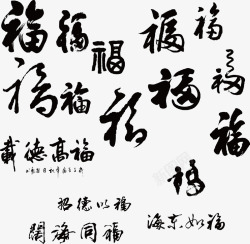 福 福 福 福 福
福 福 福 福 福
福 福 福
福高德載
招德以福
海东如福
闊海同福